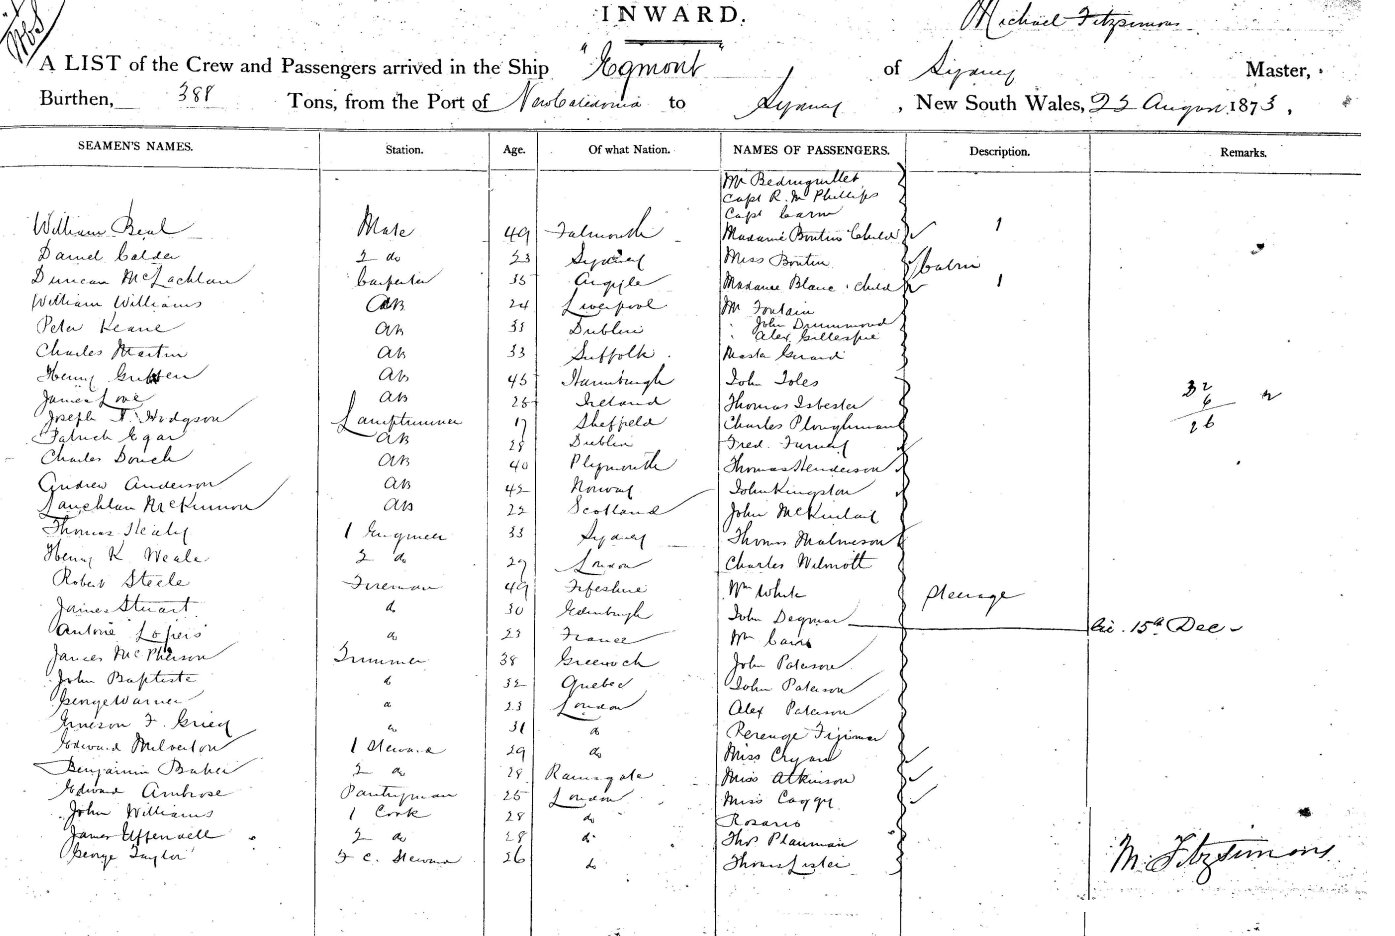 INWARD.
Michael Fitzsimons
A LIST of the Crew and Passengers arrived in the Ship "Egmont" of Sydney Master,
Burthen, 388 Tons, from the Port of New Caledonia to Sydney, New South Wales, 25 August 1873,
SEAMEN'S NAMES. Station. Age. Of what Nation. NAMES OF PASSENGERS. Description. Remarks.
Capt R. M Phillips
Capt
William Beal Mate 49 Falmouth Madame Boutin Child 1
Daniel Calder 2 do 23 Sydney Miss Boutin Cabin
Duncan McLachlan Carpenter 35 Argyle Madame Blanc child 1
William Williams AB 24 Liverpool Mr Fontain
Peter Keane AB 31 Dublin " John Drummond
" Alex Gillespie
Charles Martin AB 33 Suffolk
Henry AB 45 John Toles 32
James Love AB 25 Ireland Thomas Isbester 6
Joseph T. Hodgson Lamptrimmer 17 Sheffield Charles Ploughman 26
Patrick Egar AB 28 Dublin Fred.
Charles Douch AB 40 Plymouth Thomas Henderson
Andrew Anderson AB 42 Norway John Kingston
Lauchlan McKinnon AB 22 Scotland John McKinlay
Thomas Healy 1 Engineer 33 Sydney Thomas
Henry K Weale 2 do 29 London Charles Wilmott
Robert Steele Fireman 49 Fifeshire Wm White Steerage
James Stuart do 30 Edinburgh John Degmar
Antoine Lopers do 23 France Wm Cairns 15th Dec
James McPherson Trimmer 38 Greenock John Paterson
John Baptiste do 32 Quebec John Paterson
George Warner do 23 London Alex Paterson
F. Grieg do 31 do
Edward Milverton 1 Steward 29 do Miss Cryan
Benjamin Baker 2 do 28 Ramsgate Miss Atkinson
Edward Ambrose Pantryman 25 London Miss
John Williams 1 Cook 28 do Rosario
James Uffendell 2 do 28 do Thos Plauman
George Taylor F. C. Steward 26 do Thomas Lister
M. Fitzsimons